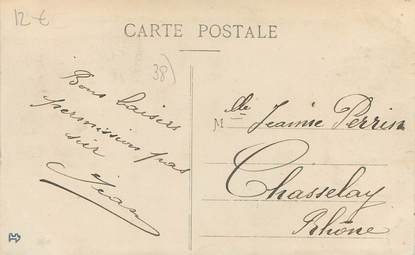 12 €
CARTE POSTALE
38)
Bons baisers
permission pas
sûr
Jean
Mlle Jeanne Perrin
Chasselay
Rhône